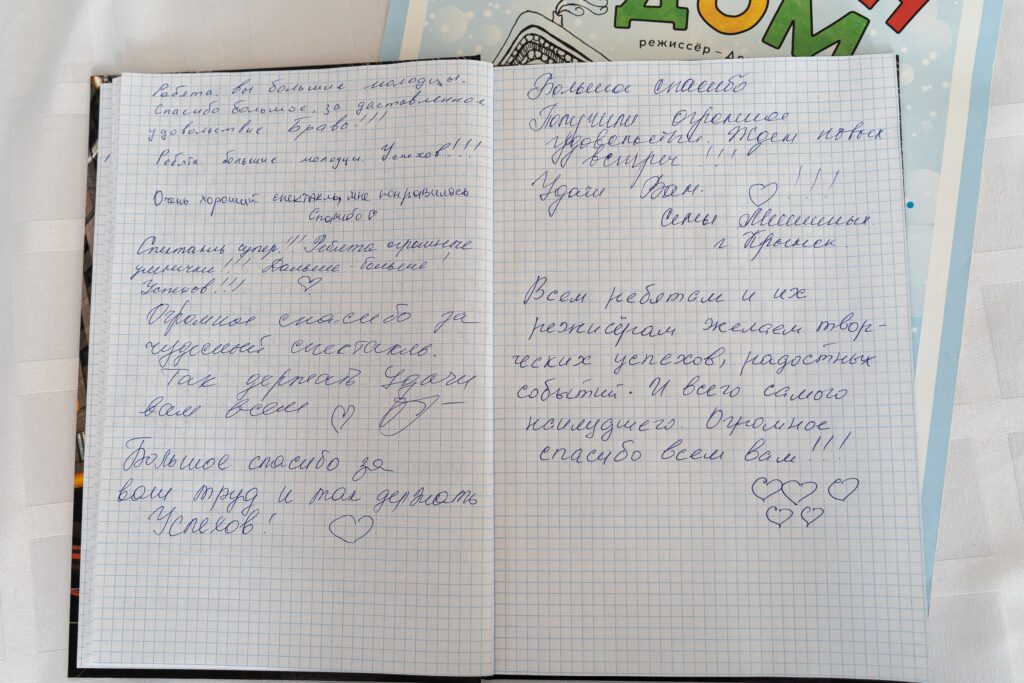 ДОМ
режиссёр –
Ребята, вы большие молодцы.
Спасибо большое, за даставленное
удовольствие. Браво!!!
Ребята большие молодцы. Успехов!!!
Очень хороший спектакль, мне понравилось
Спасибо
Спектакль супер!!! Ребята огромные
умнички!!! Дальше - больше!
Успехов!!!
Огромное спасибо за
чудесный спектакль.
Так держать Удачи
вам всем
Большое спасибо за
ваш труд и так держать
Успехов!
Большое спасибо
Получили огромное
удовольствие. Ждем новых
встреч !!!
Удачи Вам. !!!
Семья
г Крымск
Всем ребятам и их
режисёрам желаем твор-
ческих успехов, радостных
событий. И всего самого
наилудшего. Огромное
спасибо всем вам!!!